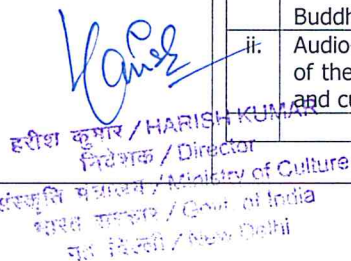 Buddh
ii. Audio
of the
and cu
Harish
हरीश कुमार / HARISH KUMAR
निदेशक / Director
संस्कृति मंत्रालय / Ministry of Culture
भारत सरकार / Govt. of India
नई दिल्ली / New Delhi